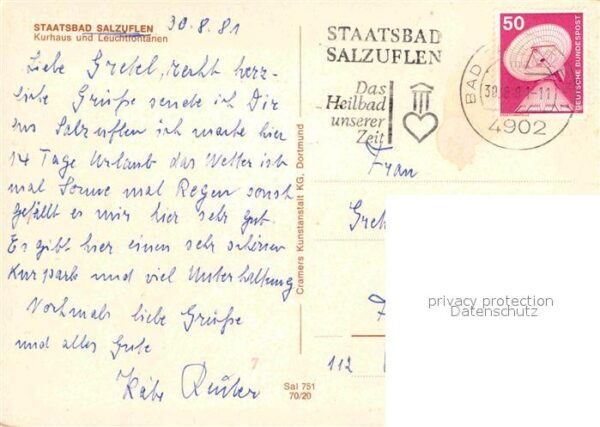 STAATSBAD SALZUFLEN
Kurhaus und Leuchtfontänen
30.8.81
Liebe Gretel, recht herz-
liche Grüße sende ich Dir
aus Salzuflen ich mache hier
14 Tage Urlaub das Wetter ist
mal Sonne mal Regen sonst
gefällt es mir hier sehr gut.
Es gibt hier einen sehr schönen
Kurpark und viel Unterhaltung
Nochmals liebe Grüße
und alles Gute
Käte
Sal 751
70/20
Cramers Kunstanstalt KG, Dortmund
STAATSBAD
SALZUFLEN
Das
Heilbad
unserer
Zeit
BAD
4902
50
DEUTSCHE BUNDESPOST
Frau
112
privacy protection
Datenschutz